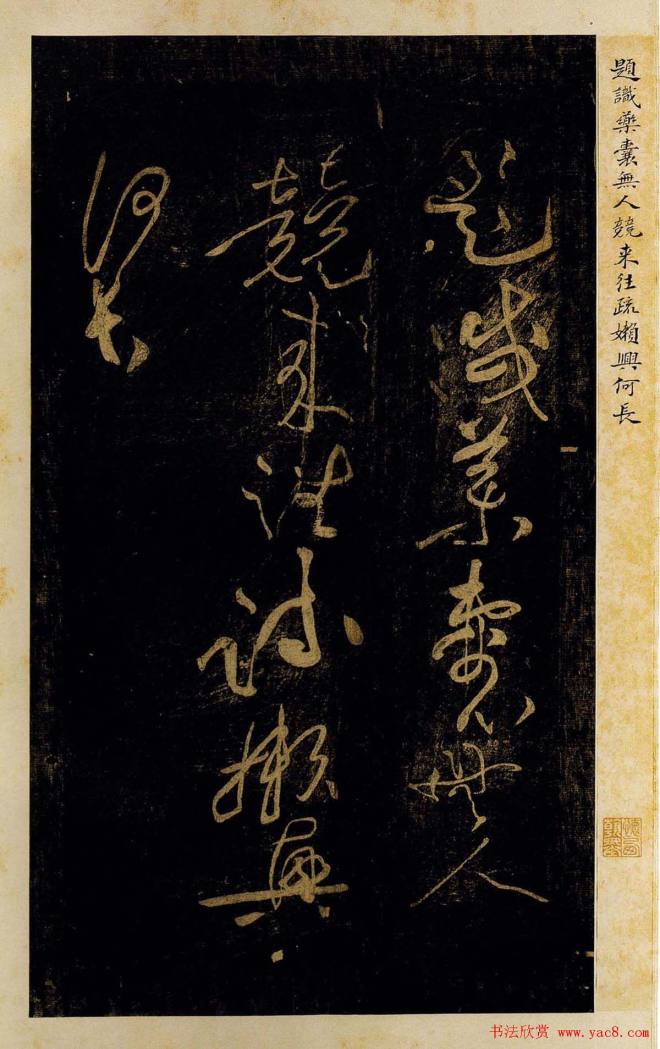 題識藥囊無人競来往疏嬾興何長
題識藥囊無人
競来往疏嬾興
何長
书法欣赏 www.yac8.com